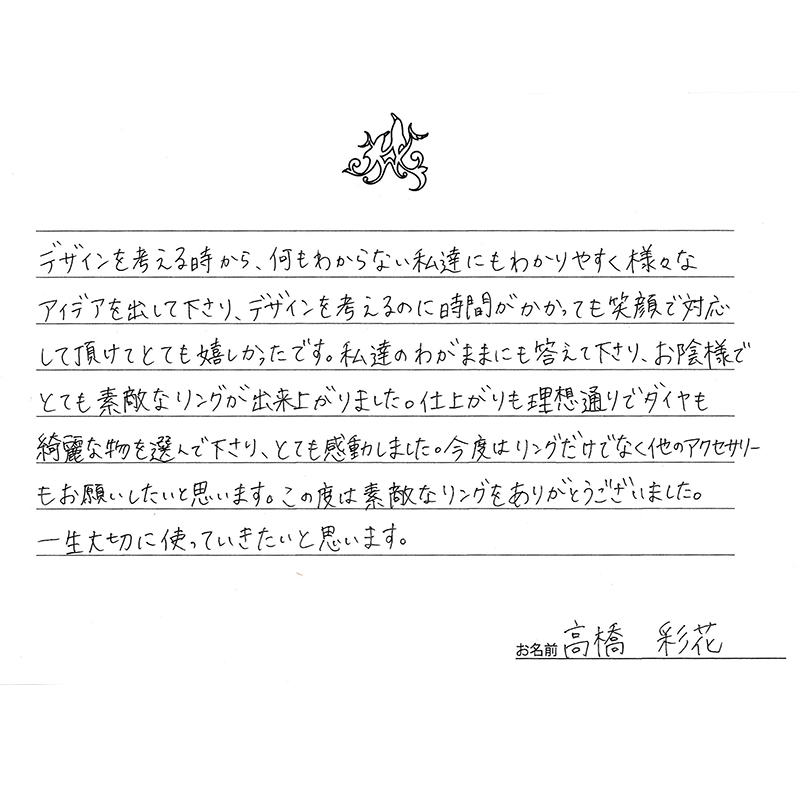 デザインを考える時から、何もわからない私達にもわかりやすく様々な
アイデアを出して下さり、デザインを考えるのに時間がかかっても笑顔で対応
して頂けてとても嬉しかったです。私達のわがままにも答えて下さり、お陰様で
とても素敵なリングが出来上がりました。仕上がりも理想通りでダイヤも
綺麗な物を選んで下さり、とても感動しました。今度はリングだけでなく他のアクセサリー
もお願いしたいと思います。この度は素敵なリングをありがとうございました。
一生大切に使っていきたいと思います。
お名前 高橋 彩花